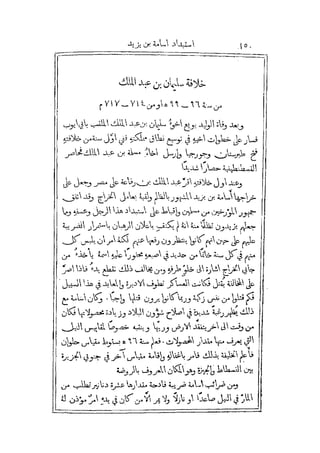 استبداد أسامة بن يزيد ٤٥٠
خلافة سليمان بن عبد الملك
من سنة ٩٦ ــ ٩٩ ه او من ٧١٤ ــ ٧١٧ م
وبعد وفاة الوليد بويع اخوه سليمان بن عبد الملك الملقب بابي ايوب
فسار على خطوات اخيه في توسيع نطاق مملكته ففي اولى سنة من خلافته
فتح طبرستان وجورجيا وارسل اخاه مسلمة بن عبد الملك لمحاصر
القسطنطينية حصاراً شديداً
وعند اولى خلافته اقر عبد الملك بن رفاعة على مصر وجعل على
خراجها أسامة بن يزيد المشهور بالظلم ولقبه بعامل الخراج وقد اتفق
جمهور المؤرخين من مسلمين واقباط على استبداد هذا الرجل وعسفه وما
جعلهم يزيدون تظلماً منه انه لم يكتفِ باعلان الرهبان باستمرار الضريبة
عليهم على حين انهم كانوا ينتظرون رفعها عنهم لكنه امر ان يلبس كل
منهم في كل سنة خاتماً من حديد في اصبعه محفوراً عليه اسمه يأخذه من
جابي الخراج اشارة الى خلو طرفه ومن يخالف ذلك تقطع يده فاذا اصر
على المخالفة يُقتل فكانت العساكر تطوف الاديرة والمعابد في هذا السبيل
فكم قتلوا من نفس زكية وربما كانوا يرون قتلها واجباً . وكان أسامة مع
ذلك يُظهر رغبة شديدة في اصلاح شؤون البلاد وزيادة محصولاتها فكان
من وقت الى آخر يتفقد الارض وريها وينتبه خصوصاً لمقاييس النيل
التي يعرف منها مقدار المحصولات . فعلم سنة ٩٦ ه بسقوط مقياس حلوان
فاعلم الخليفة بذلك فامر باغفاله واقامة مقياس آخر في جنوبي الجزيرة
بين الفسطاط والجيزة وهو المكان المعروف بالروضة
ومن ضرائب أسامة ضريبة فادحة مقدارها عشرة دنانير تطلب من
المارّ في النيل صاعداً او نازلاً ولا يمر الا من كان في يده امر مؤذن له